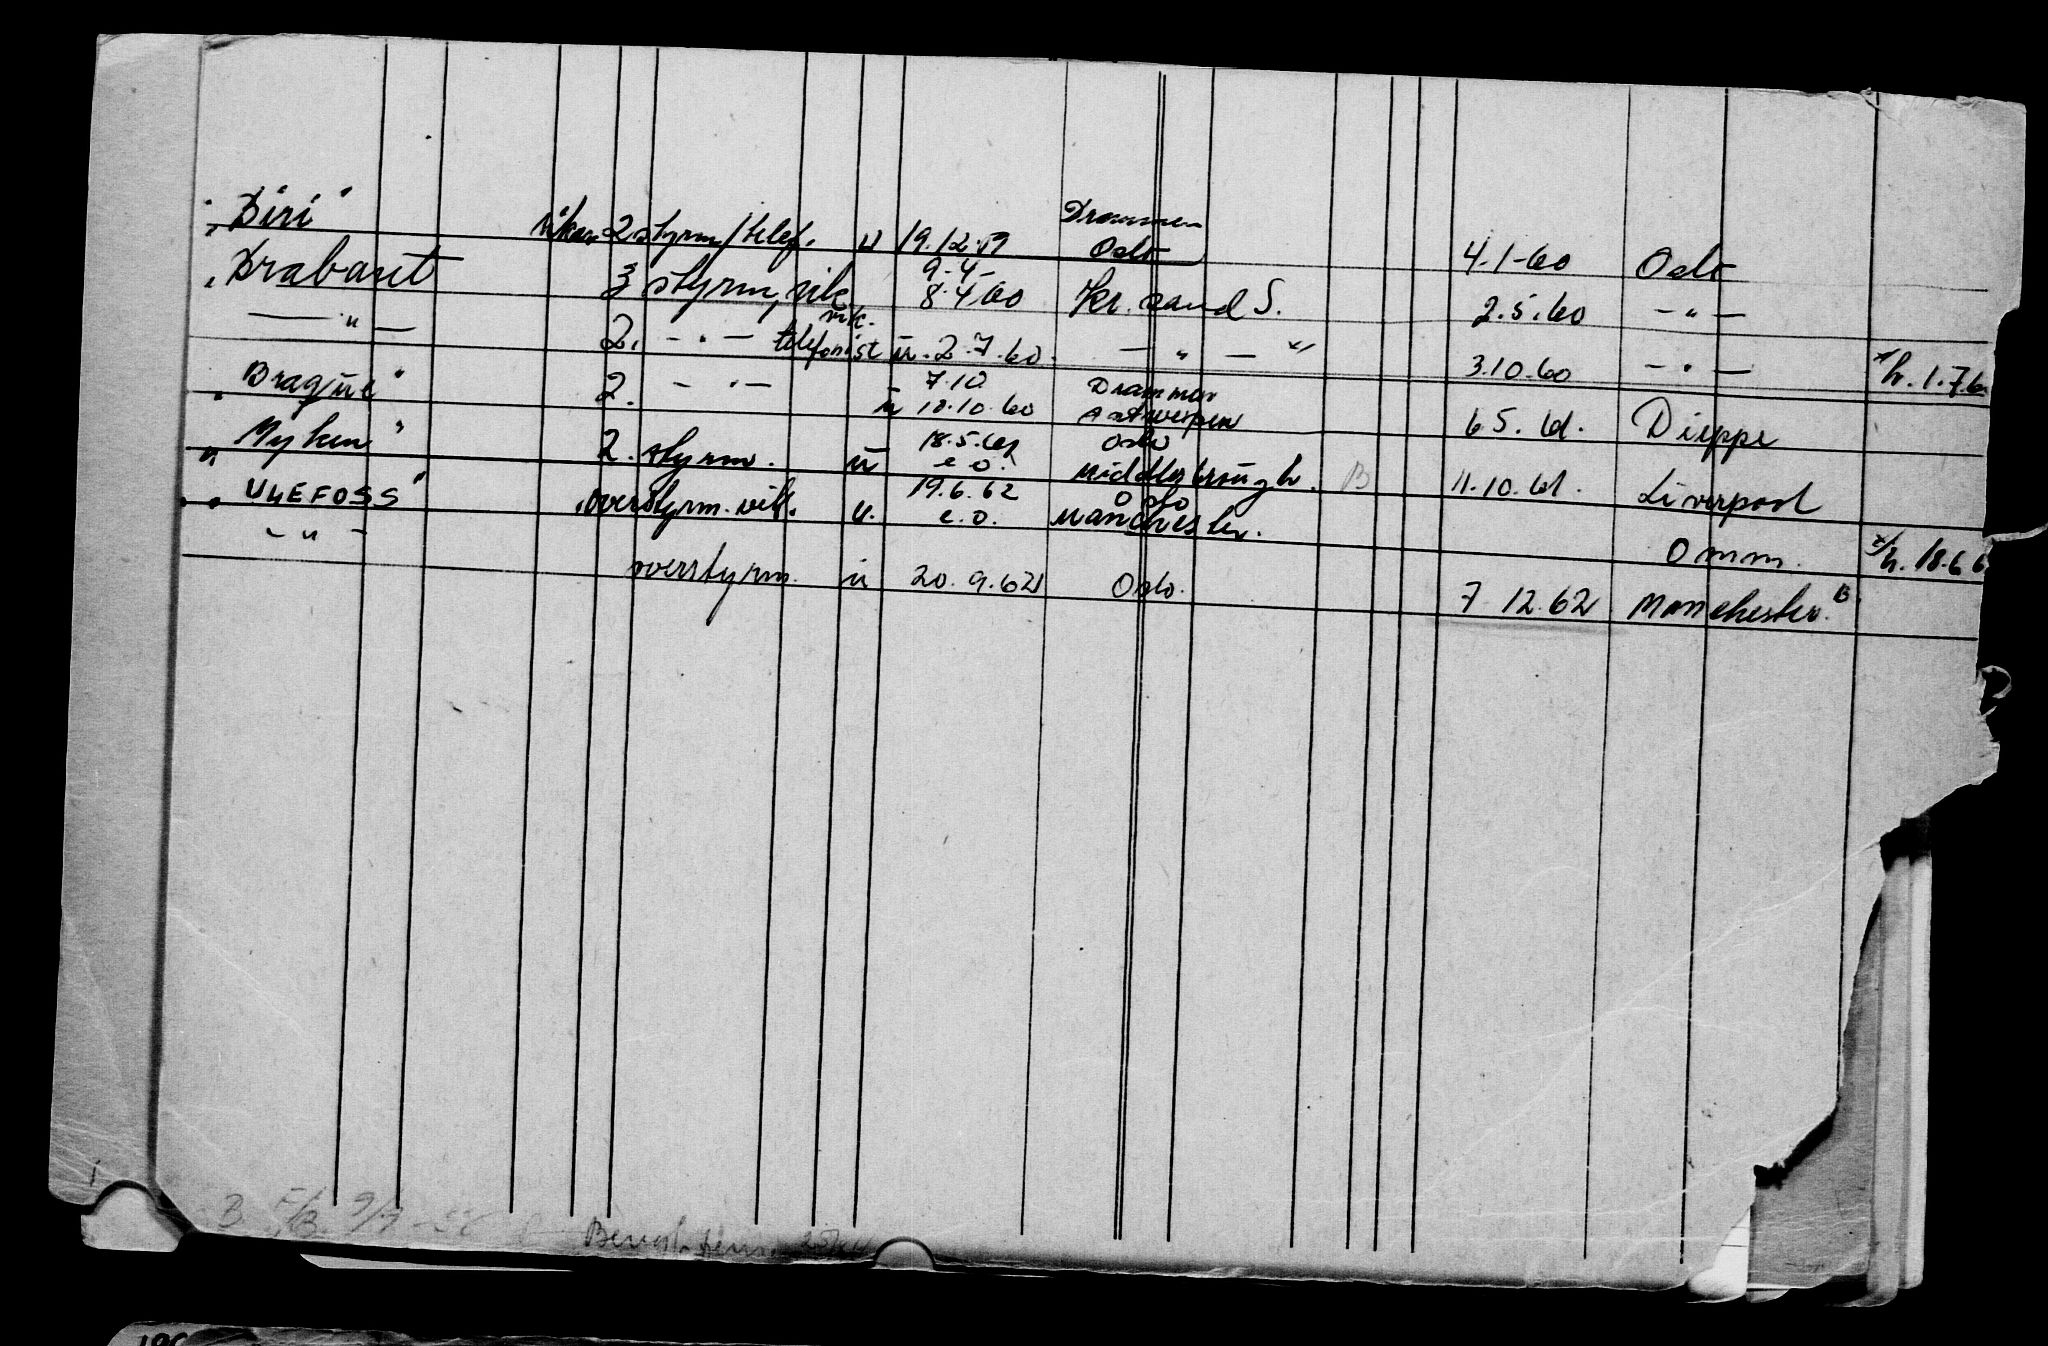 "Biri" vikar 2 styrm/telef. u 19.12.59 Drammen Oslo 4-1-60 Oslo
"Brabant 3 styrm, vik. 9-4- 8.4.60 Kr.sand S. 2.5.60 - " -
- " - 2. - " - vik. telefonist u. 2.7.60. - " - x/ 3.10.60 - " - x/ h. 1.7.6
"Brague" 2. - " - u 7.10 18.10.60 Drammen Antwerpen 6 5. 61. Dieppe
"Myken" 2. styrm. u 18.5.61 e.o. Oslo Middlesbrough. B 11.10.61. Liverpool
"ULEFOSS" overstyrm. vik. u. 19.6.62 e.o. Oslo Manchester. Omm. x/ h. 18.6 6
- " - overstyrm. u 20.9.62 Oslo. 7 12.62 Manchester. B
B F/B 9/9